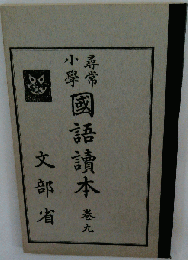 尋常
小學
國語讀本
卷九
文部省